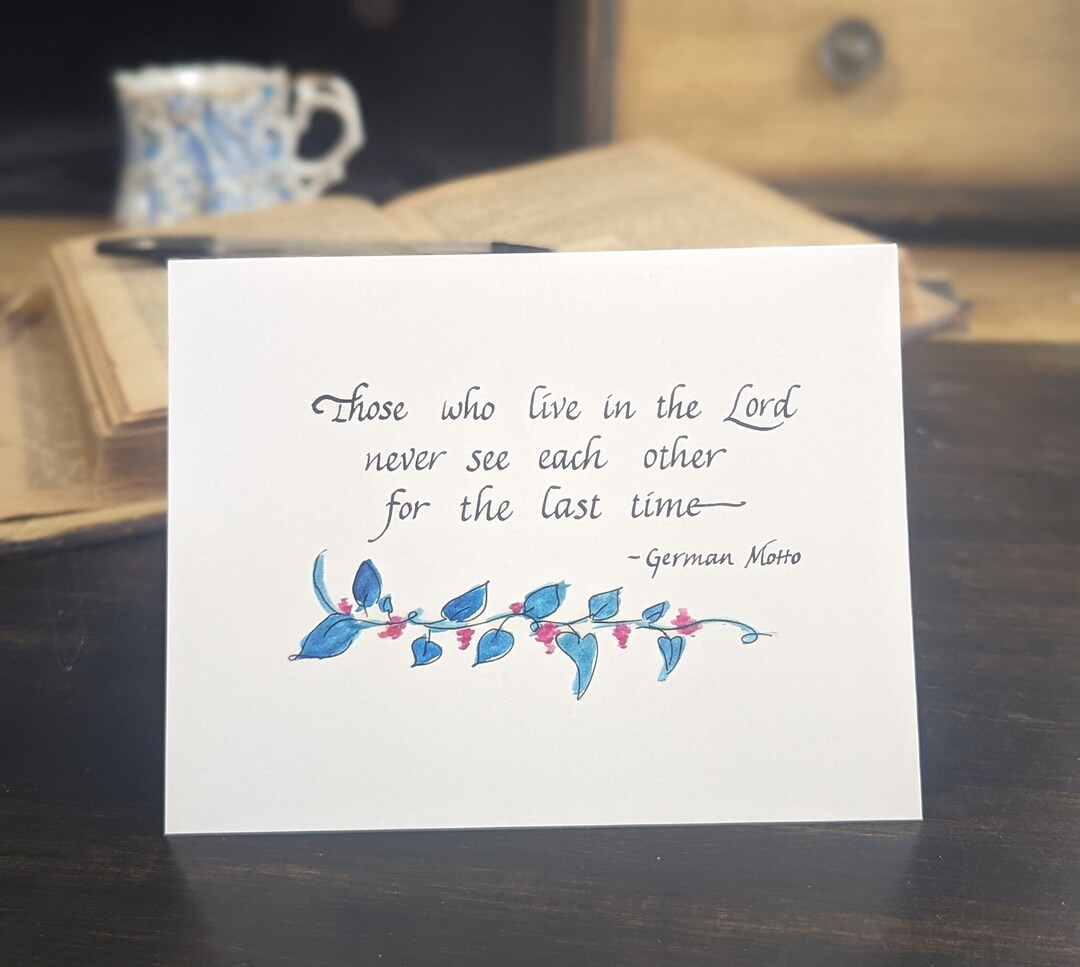 Those who live in the Lord
never see each other
for the last time—
-German Motto